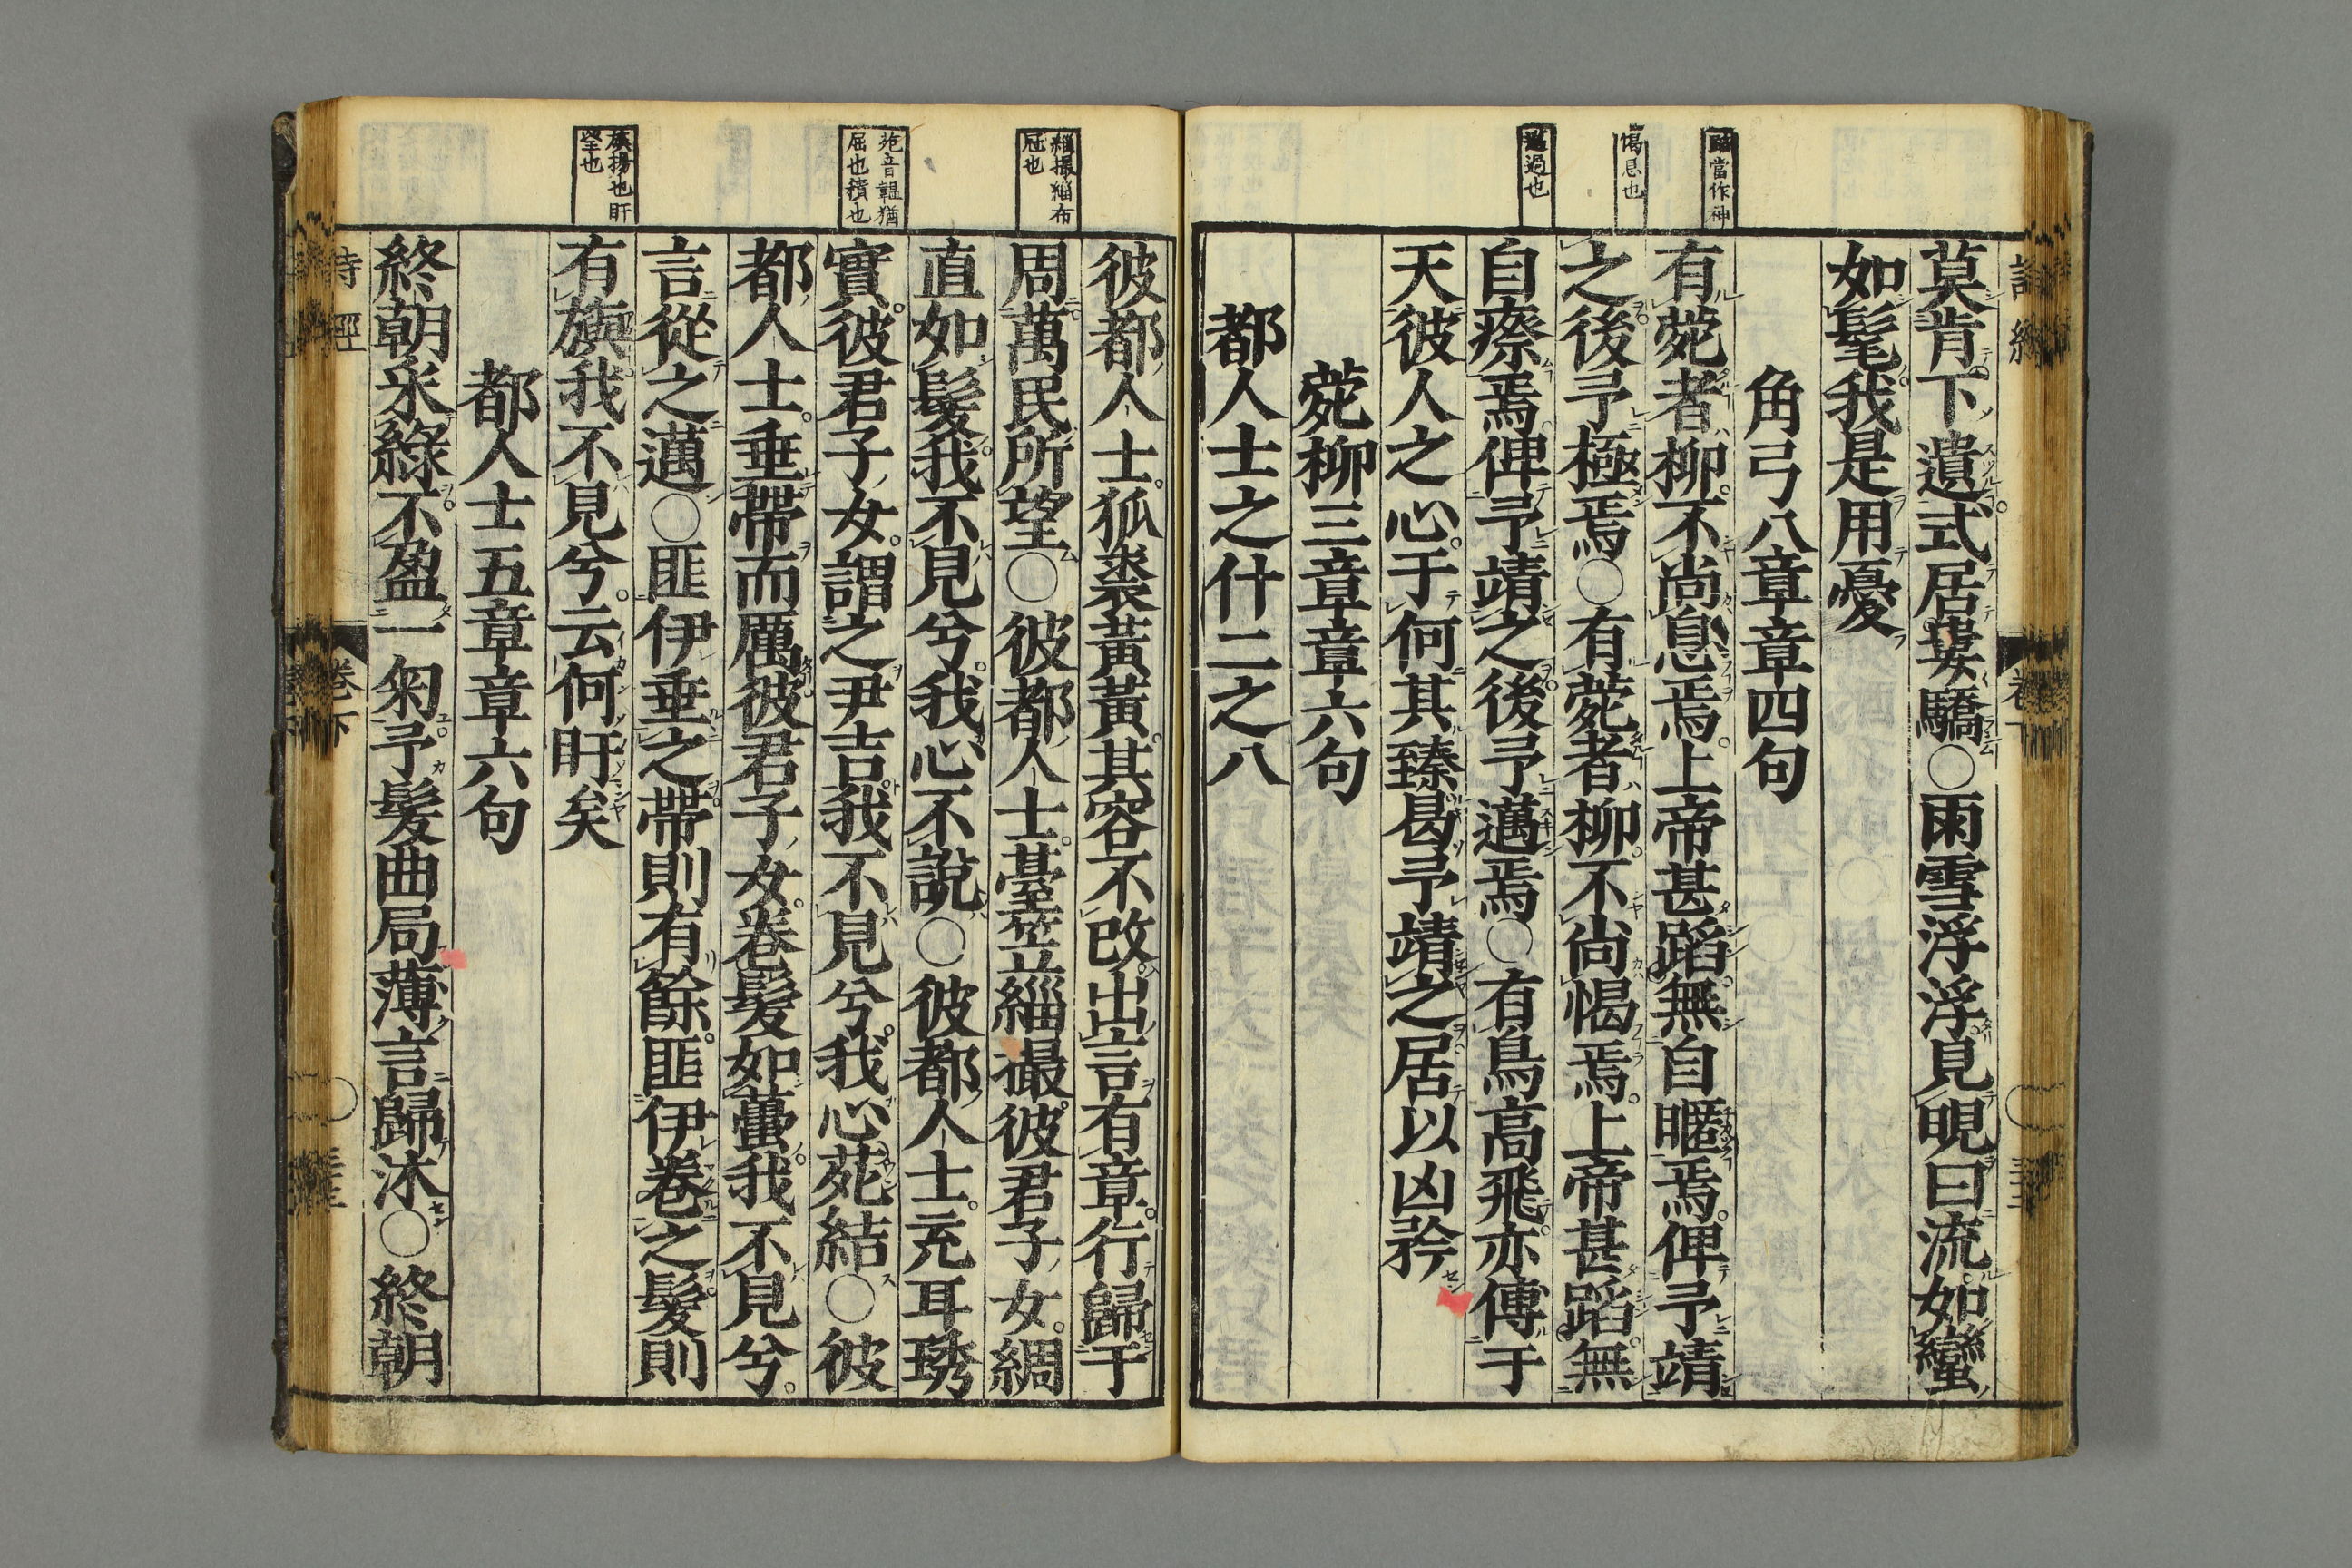 蹈當作神
愒息也
邁過也
莫肯下遺式居婁驕○雨雪浮浮見晛曰流如蠻
如髦我是用憂
角弓八章章四句
有菀者柳不尚息焉上帝甚蹈無自暱焉俾予靖
之後予極焉○有菀者柳不尚愒焉上帝甚蹈無
自瘵焉俾予靖之後予邁焉○有鳥高飛亦傅于
天彼人之心于何其臻曷予靖之居以凶矜
菀柳三章章六句
都人士之什二之八
緇撮緇布
冠也
苑音韞猶
屈也積也
旟揚也盱
望也
彼都人士狐裘黃黃其容不改出言有章行歸于
周萬民所望○彼都人士臺笠緇撮彼君子女綢
直如髮我不見兮我心不說○彼都人士充耳琇
實彼君子女謂之尹吉我不見兮我心苑結○彼
都人士垂帶而厲彼君子女卷髮如蠆我不見兮
言從之邁○匪伊垂之帶則有餘匪伊卷之髮則
有旟我不見兮云何盱矣
都人士五章章六句
終朝采綠不盈一匊予髮曲局薄言歸沐○終朝
詩經
卷下